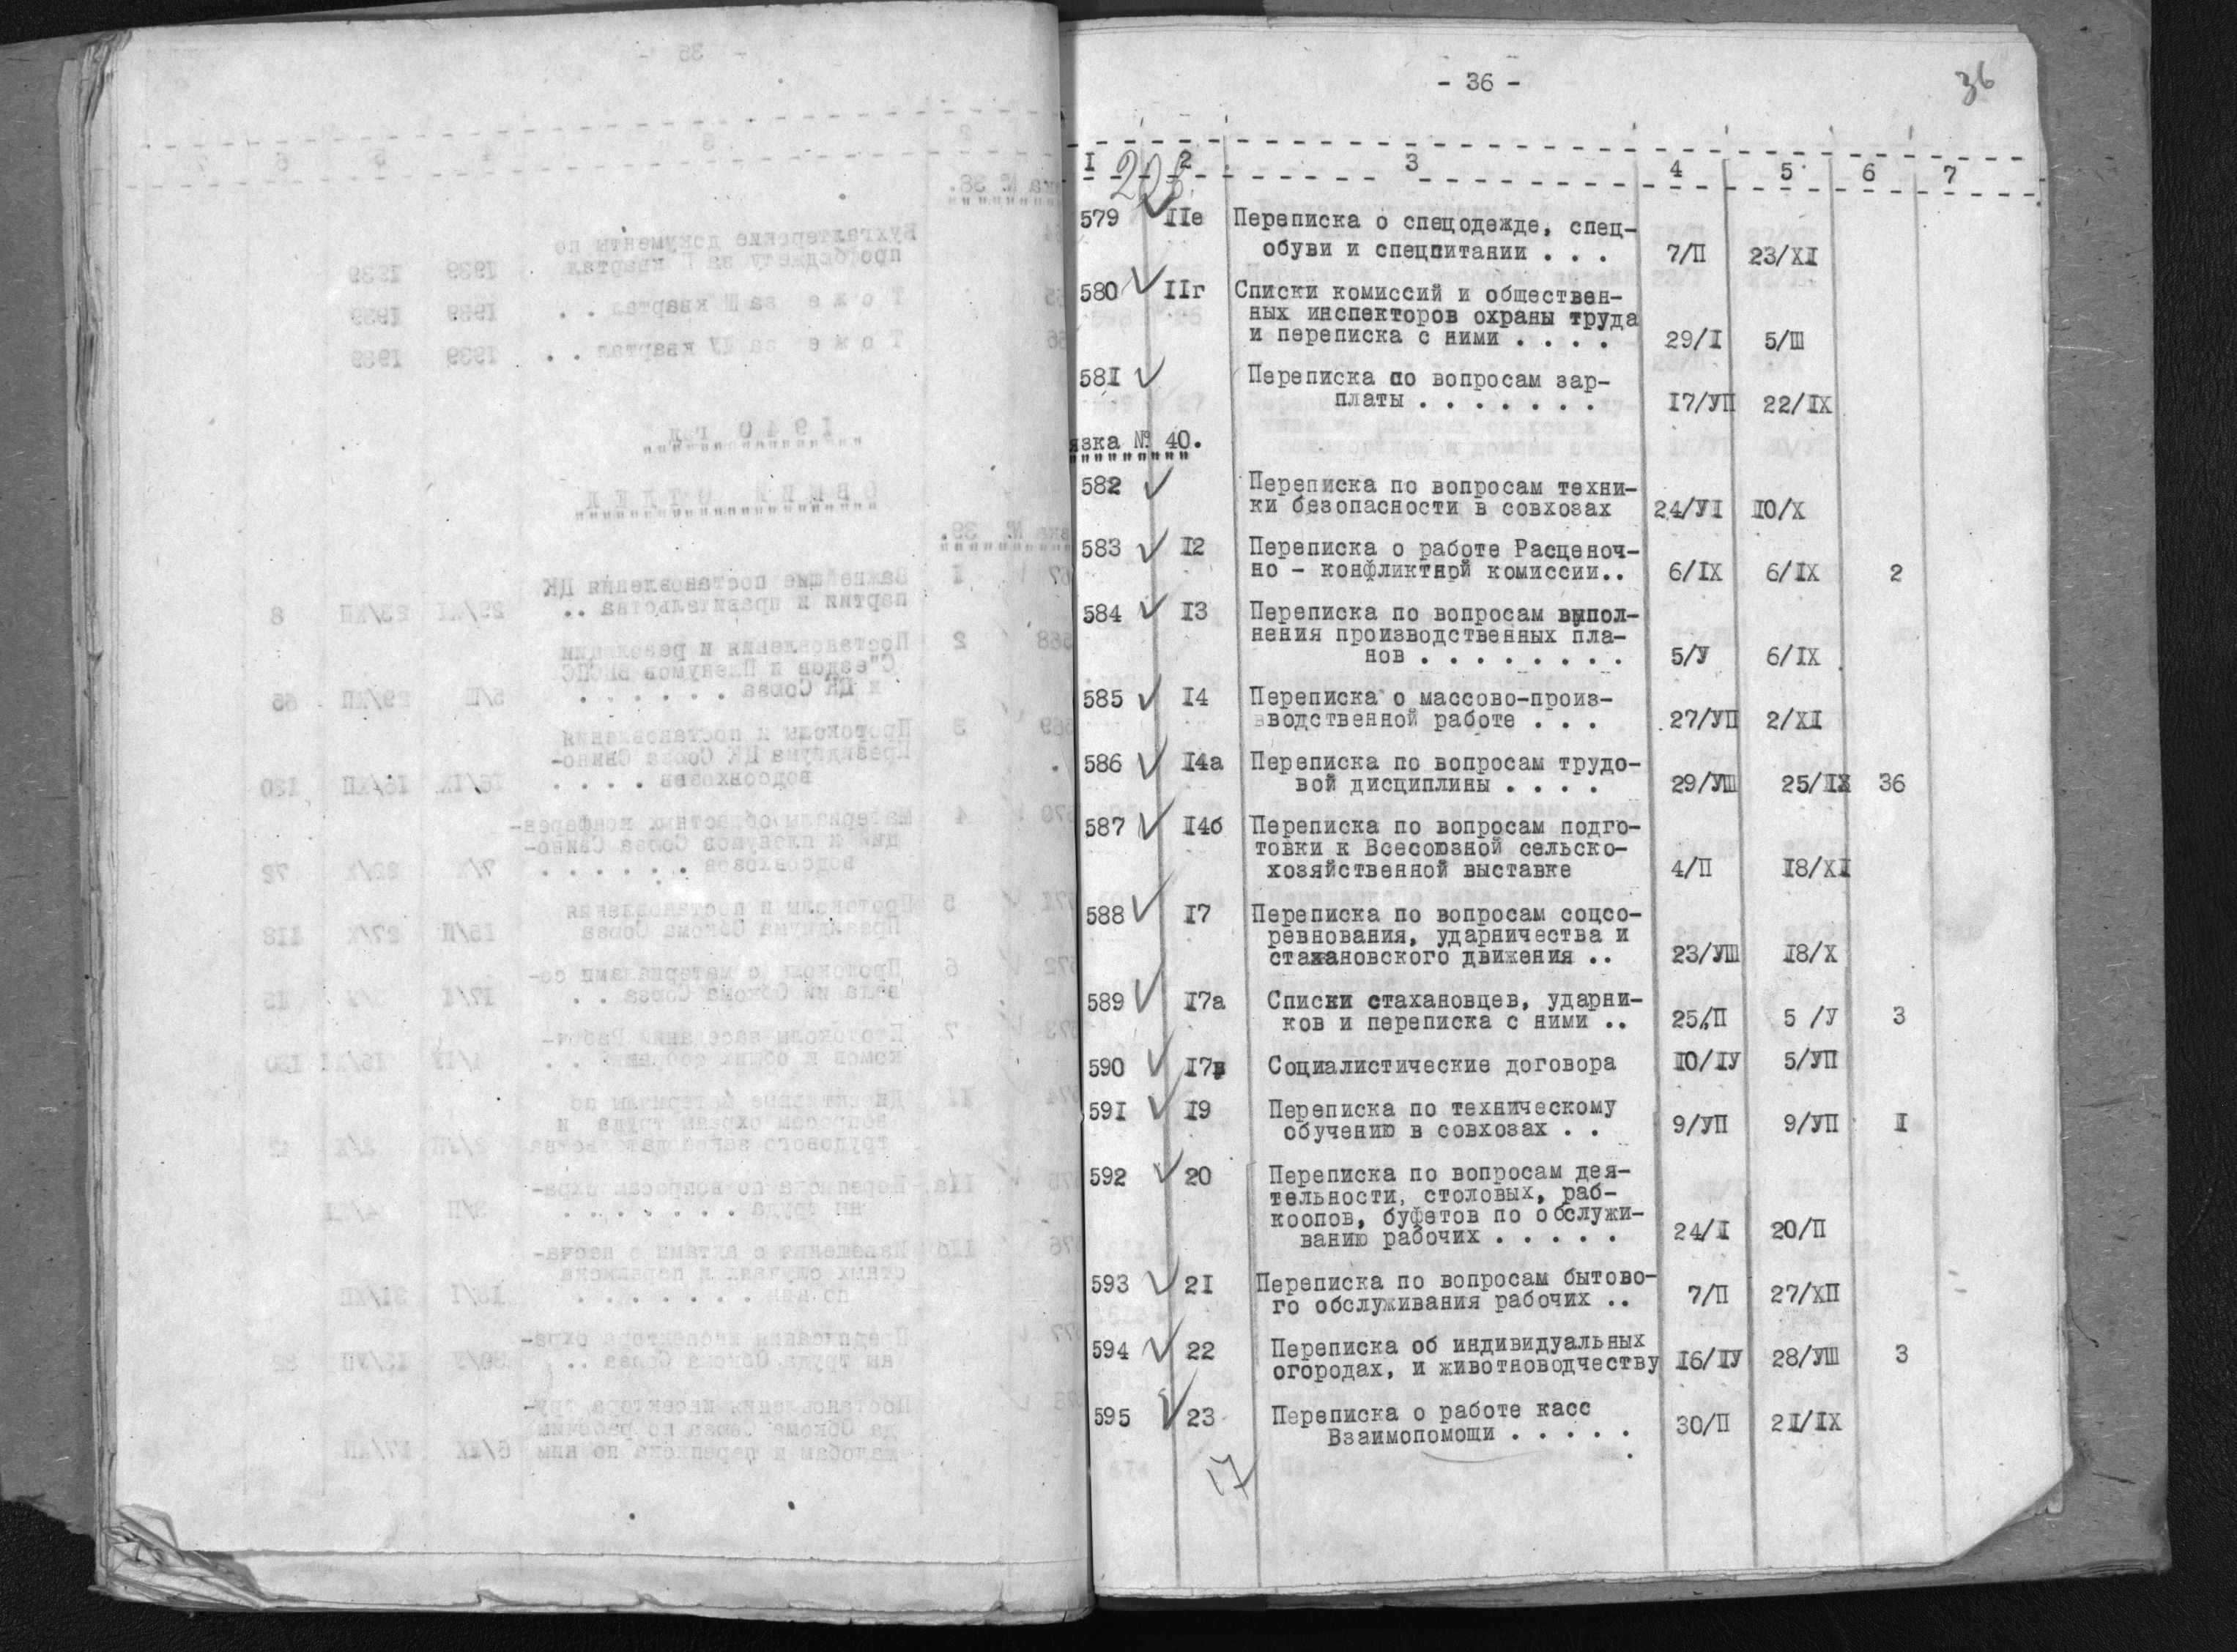 - 36 -
36
I 2 3 4 5 6 7
579 IIе Переписка о спецодежде, спец-
обуви и спецпитании . . . 7/П 23/XI
580 IIг Списки комиссий и обществен-
ных инспекторов охраны труда
и переписка с ними . . . . 29/I 5/Ш
581 Переписка по вопросам зар-
платы . . . . . . . 17/УП 22/IX
язка № 40.
582 Переписка по вопросам техни-
ки безопасности в совхозах 24/УI IO/X
583 I2 Переписка о работе Расценоч-
но - конфликтной комиссии.. 6/IX 6/IX 2
584 I3 Переписка по вопросам выпол-
нения производственных пла-
нов . . . . . . . . 5/У 6/IX
585 I4 Переписка о массово-произ-
вводственной работе . . . 27/УП 2/XI
586 I4а Переписка по вопросам трудо-
вой дисциплины . . . . 29/УШ 25/IX 36
587 I4б Переписка по вопросам подго-
товки к Всесоюзной сельско-
хозяйственной выставке 4/П I8/XI
588 I7 Переписка по вопросам соцсо-
ревнования, ударничества и
стахановского движения .. 23/УШ I8/X
589 I7а Списки стахановцев, ударни-
ков и переписка с ними .. 25/П 5 /У 3
590 I7в Социалистические договора IO/IУ 5/УП
591 I9 Переписка по техническому
обучению в совхозах . . 9/УП 9/УП I
592 20 Переписка по вопросам дея-
тельности, столовых, раб-
коопов, буфетов по обслужи-
ванию рабочих . . . . . 24/I 20/П
593 2I Переписка по вопросам бытово-
го обслуживания рабочих .. 7/П 27/ХП
594 22 Переписка об индивидуальных
огородах, и животноводчеству I6/IУ 28/УШ 3
595 23 Переписка о работе касс
Взаимопомощи . . . . . 30/П 2I/IX
17